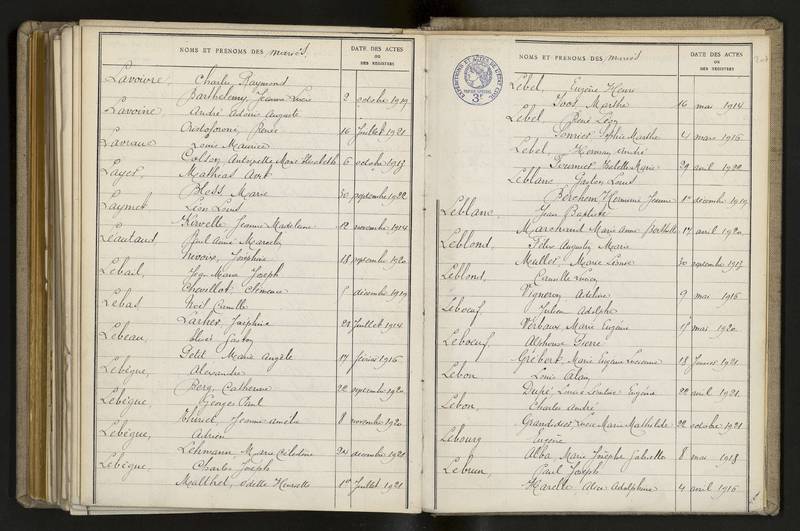 NOMS ET PRENOMS DES mariés
DATE DES ACTES
OU
DES REGISTRES
Lavoivre, Charles Raymond
Barthelemy, Jeanne Lucie 2 octobre 1919
Lavoine, André Edmé Auguste
Renée 16 Juillet 1921
Louis Maurice
Colson, Antoinette Marie Elisabeth 6 octobre 1913
Layer, Mathias
Bloss Marie 30 septembre 1922
Laymet Léon Louis
Kervelle Jeanne Madeleine 12 novembre 1914
Léautaud, Paul Aimé Marcelin
Joséphine 18 septembre 1920
Lebail, Joseph
Chevillot, Clémence décembre 1919
Lebas Noël Camille
Larher Joséphine 28 Juillet 1914
Lebeau, Gaston
Petit Marie Angèle 17 février 1916
Lebègue, Alexandre
Berg, Catherine 22 septembre 1920
Lebègue, Georges Paul
Jeanne Amélie 8 novembre 1920
Lebègue, Adrien
Lehmann, Marie 24 décembre 1921
Lebègue, Charles Joseph
Malthet, Odette Henriette 1er Juillet 1921
NOMS ET PRENOMS DES mariés
DATE DES ACTES
OU
DES REGISTRES
Lebel, Eugène Henri
Toos Marthe 16 mai 1914
Lebel, René Léon
Sophie Marthe 4 mars 1916
Lebel, Herman André
Fournier 29 avril 1922
Leblanc Gaston Louis
Berchem Hermine Jeanne 1er décembre 1919
Leblanc, Jean Baptiste
Marchand Marie Anne Berthelle 17 avril 1920
Leblond, Félix Augustin Marie
Mullet, Marie 30 septembre 1913
Leblond, Camille Lucien
Vigneron Adeline 9 mai 1916
Leboeuf, Julien Adolphe
Verbaux Marie Eugénie mai 1920
Leboeuf Alphonse Pierre
Grébert, Marie Eugénie Lucienne 18 Janvier 1921
Lebon Louis Alan
Dupé Louise Eugénie 22 avril 1921
Lebon, Charles André
Grandidier Lucie Marie Mathilde 22 octobre 1921
Lebourg Eugène
Alba Marie Josèphe Gabrielle 8 mai 1913
Lebrun, Paul Joseph
Marelle Adolphine 4 avril 1916